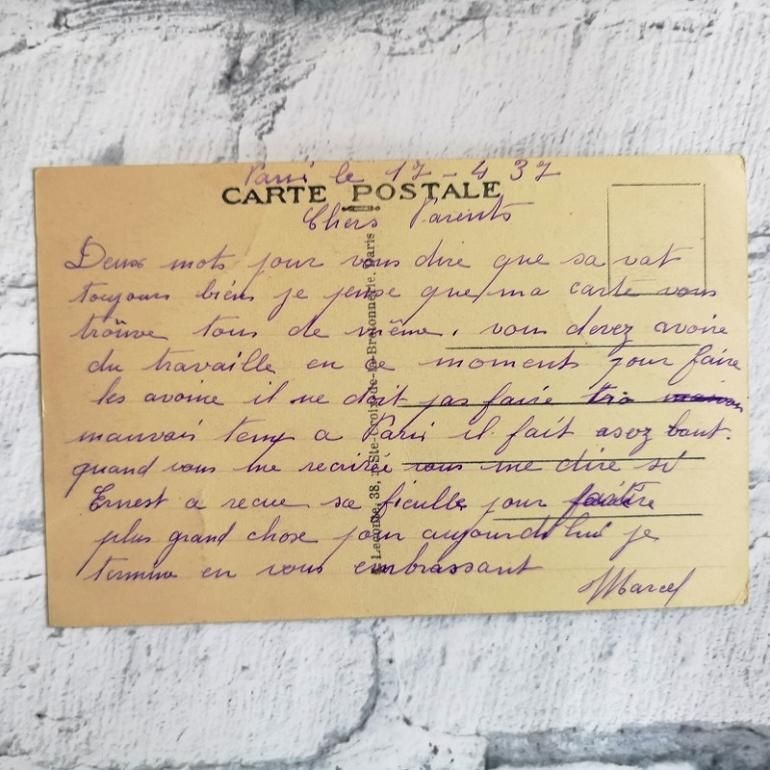 Paris le 17 - 4 37
CARTE POSTALE
Chers Parents
Deux mots pour vous dire que sa vat
toujours bien je pense que ma carte vous
trouve tous de même. vous devez avoire
du travaille en ce moments pour faire
les avoine il ne doit pas faire tro
mauvais temp a Paris il fait asez baut.
quand vous me recrirée vous me dire si
Ernest a recue sa ficelle pour
plus grand chose pour aujourd'hui je
termine en vous embrassant
Marcel
Lecomte, 38, r. Ste-Croix-de-la-Bretonnerie. Paris